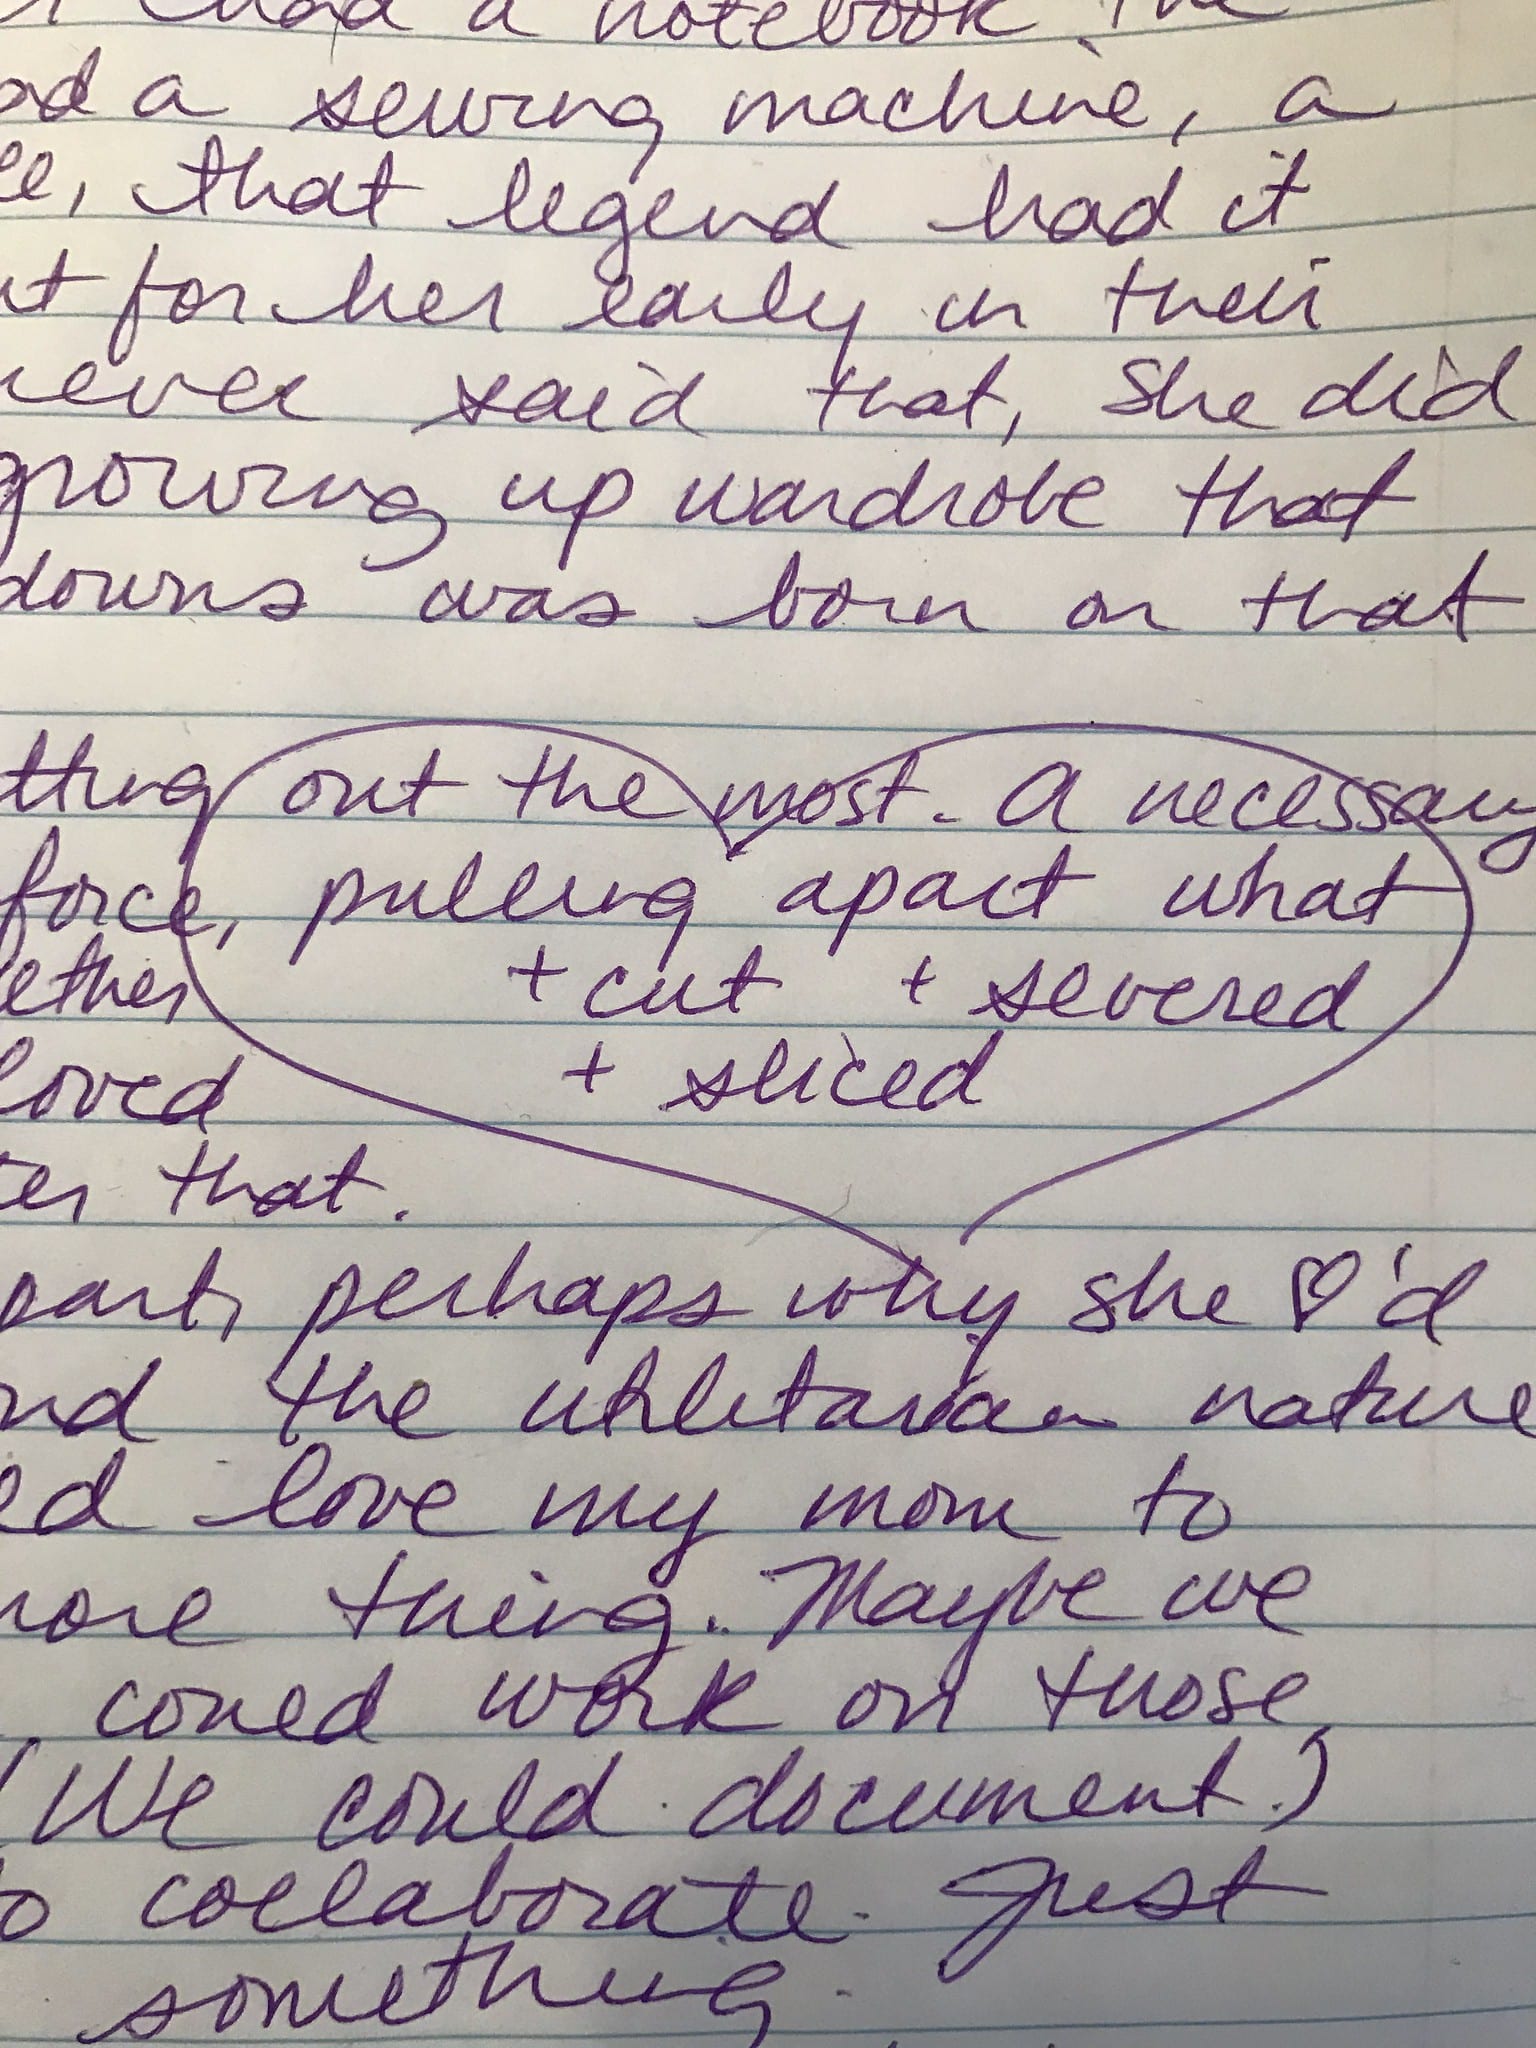 had a notebook. The
a sewing machine, a
, that legend had it
for her early in their
never said that, she did
growing up wardrobe that
downs was born on that
out the most. A necessary
force, pulling apart what
+ cut + severed
loved + sliced
that.
part, perhaps why she ♡'d
the utilitarian nature
love my mom to
more thing. Maybe we
could work on those
(We could document.)
to collaborate. Just
something.